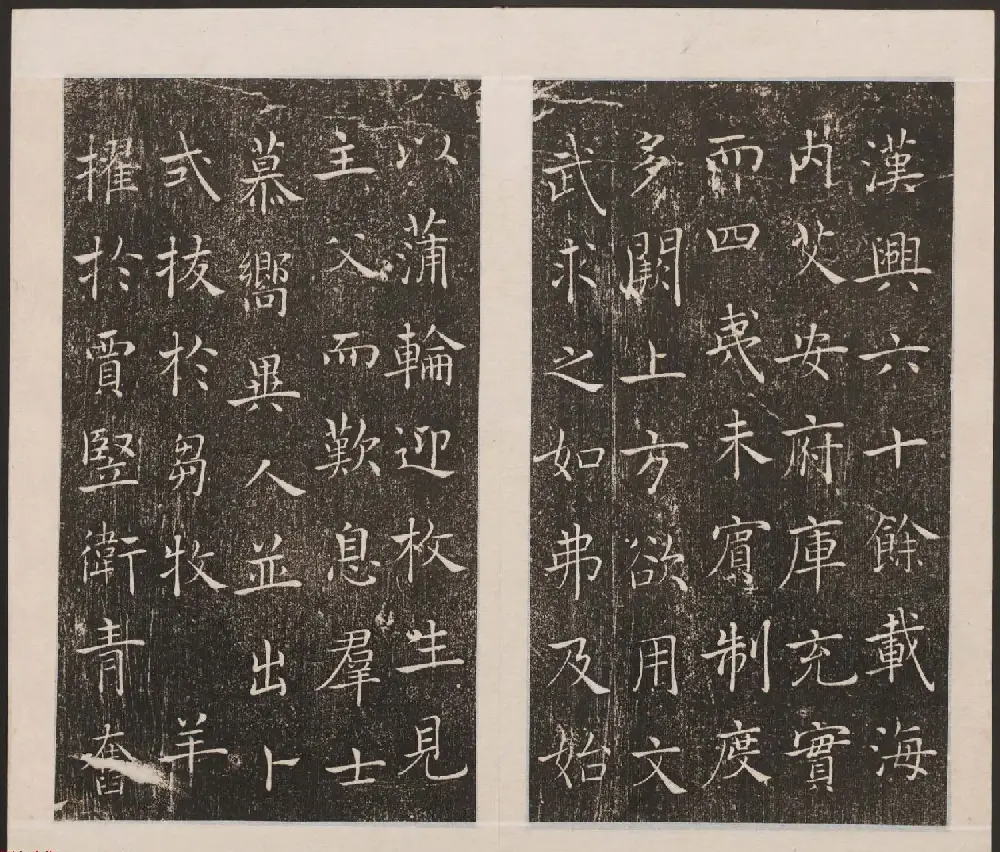 漢興六十餘載海
内艾安府庫充實
而四夷未賓制度
多闕上方欲用文
武求之如弗及始
以蒲輪迎枚生見
主父而歎息羣士
慕嚮異人並出卜
式拔於芻牧 羊
擢於賈竪衛青奮